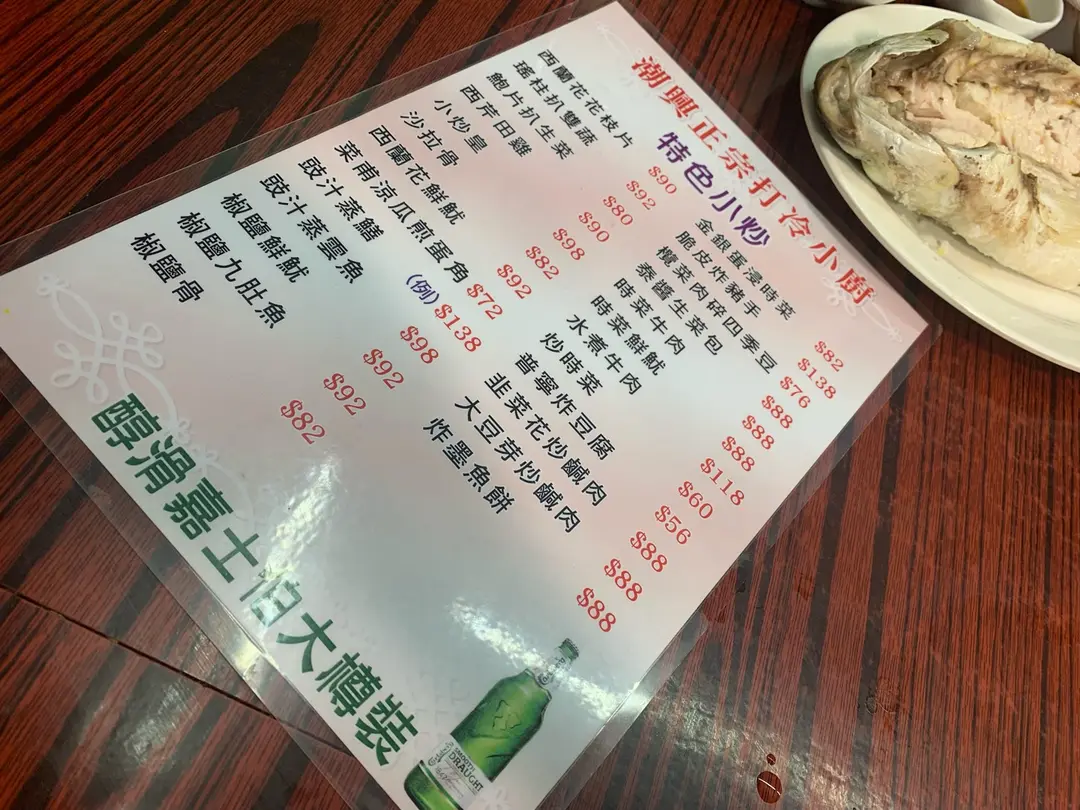 潮興正宗打冷小廚
特色小炒
西蘭花花枝片 $90
瑤柱扒雙蔬 $92
鮑片扒生菜 $80
西芹田雞 $90
小炒皇 $98
沙拉骨 $82
西蘭花鮮魷 $92
菜甫涼瓜煎蛋角 $72
豉汁蒸鱔 (例)$138
豉汁蒸雲魚 $98
椒鹽鮮魷 $92
椒鹽九肚魚 $92
椒鹽骨 $82
金銀蛋浸時菜 $82
脆皮炸豬手 $138
欖菜肉碎四季豆 $76
泰醬生菜包 $88
時菜牛肉 $88
時菜鮮魷 $88
水煮牛肉 $118
炒時菜 $60
普寧炸豆腐 $56
韭菜花炒鹹肉 $88
大豆芽炒鹹肉 $88
炸墨魚餅 $88
醇滑嘉士伯大樽裝
SMOOTH
DRAUGHT